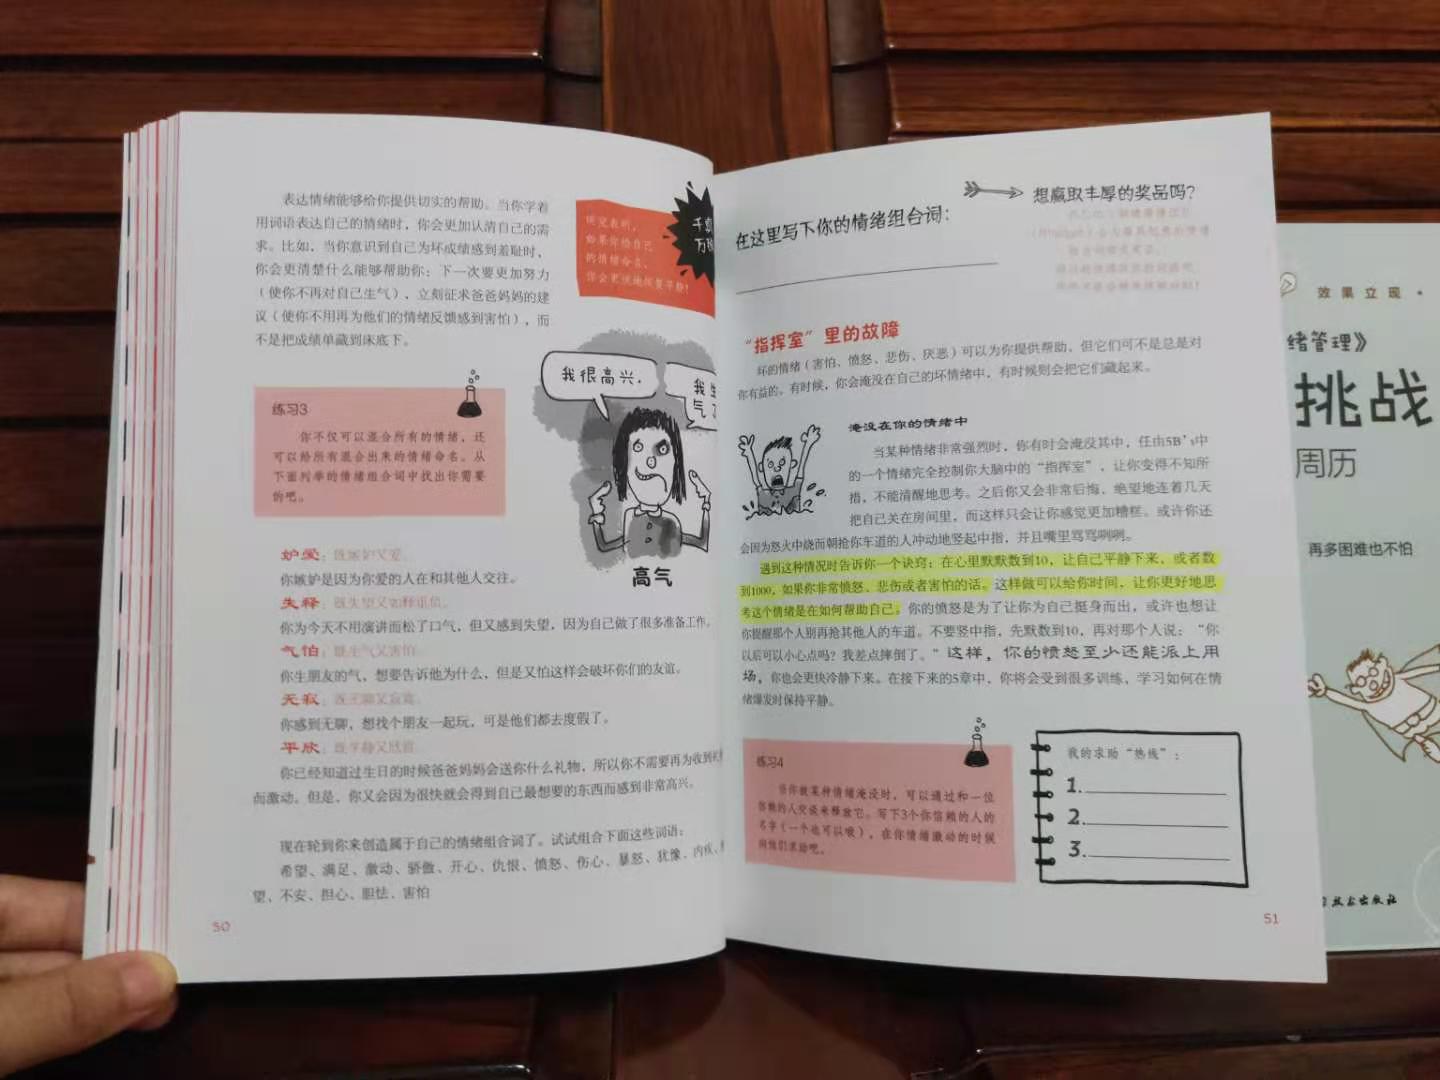 表达情绪能够给你提供切实的帮助。当你学着
用词语表达自己的情绪时，你会更加认清自己的需
求。比如，当你意识到自己为坏成绩感到羞耻时，
你会更清楚什么能够帮助你：下一次要更加努力
（使你不再对自己生气），立刻征求爸爸妈妈的建
议（使你不用再为他们的情绪反馈感到害怕），而
不是把成绩单藏到床底下。
千真
万确
研究表明，
如果你给自己
的情绪命名，
你会更快地恢复平静！
我很高兴，
我生
气了
高气
练习3
你不仅可以混合所有的情绪，还
可以给所有混合出来的情绪命名。从
下面列举的情绪组合词中找出你需要
的吧。
妒爱：既嫉妒又爱。
你嫉妒是因为你爱的人在和其他人交往。
失释：既失望又如释重负。
你为今天不用演讲而松了口气，但又感到失望，因为自己做了很多准备工作。
气怕：既生气又害怕。
你生朋友的气，想要告诉他为什么，但是又怕这样会破坏你们的友谊。
无寂：既无聊又寂寞。
你感到无聊，想找个朋友一起玩，可是他们都去度假了。
平欣：既平静又欣喜。
你已经知道过生日的时候爸爸妈妈会送你什么礼物，所以你不需要再为收到礼
而激动。但是，你又会因为很快就会得到自己最想要的东西而感到非常高兴。
现在轮到你来创造属于自己的情绪组合词了。试试组合下面这些词语：
希望、满足、激动、骄傲、开心、仇恨、愤怒、伤心、暴怒、犹豫、内疚、
望、不安、担心、胆怯、害怕
50
想赢取丰厚的奖品吗？
在这里写下你的情绪组合词：
“指挥室”里的故障
坏的情绪（害怕、愤怒、悲伤、厌恶）可以为你提供帮助，但它们可不是总是对
你有益的。有时候，你会淹没在自己的坏情绪中，有时候则会把它们藏起来。
淹没在你的情绪中
当某种情绪非常强烈时，你有时会淹没其中，任由5B’s中
的一个情绪完全控制你大脑中的“指挥室”，让你变得不知所
措，不能清醒地思考。之后你又会非常后悔、绝望地连着几天
把自己关在房间里，而这样只会让你感觉更加糟糕。或许你还
会因为怒火中烧而朝抢你车道的人冲动地竖起中指，并且嘴里骂骂咧咧。
遇到这种情况时告诉你一个诀窍：在心里默默数到10，让自己平静下来，或者数
到1000，如果你非常愤怒、悲伤或者害怕的话。这样做可以给你时间，让你更好地思
考这个情绪是在如何帮助自己。你的愤怒是为了让你为自己挺身而出，或许也想让
你提醒那个人别再抢其他人的车道。不要竖中指，先默数到10，再对那个人说：“你
以后可以小心点吗？我差点摔倒了。”这样，你的愤怒至少还能派上用
场，你也会更快冷静下来。在接下来的5章中，你将会受到很多训练，学习如何在情
绪爆发时保持平静。
练习4
当你被某种情绪淹没时，可以通过和一位
信赖的人交谈来释放它。写下3个你信赖的人的
名字（一个也可以哦），在你情绪激动的时候
向他们求助吧。
我的求助“热线”：
1.
2.
3.
51
效果立现
绪管理》
挑战
周历
再多困难也不怕
技术出版社